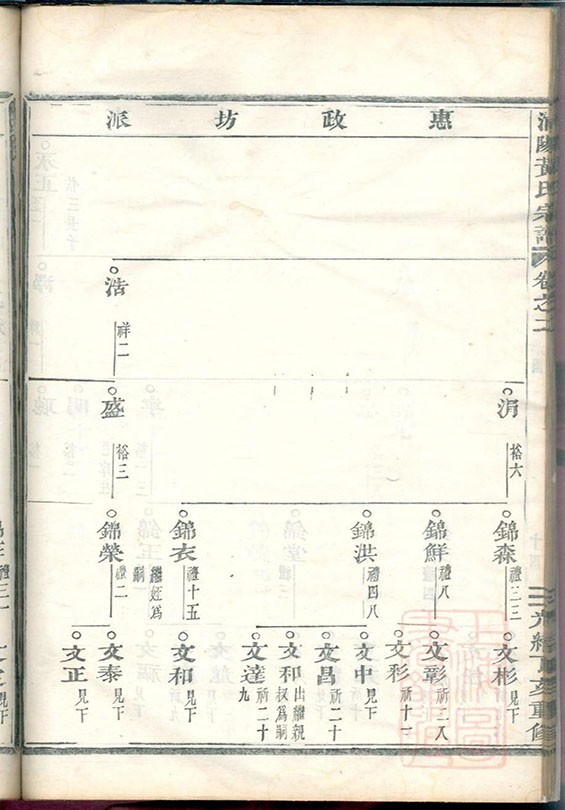 惠政坊派
黃氏宗譜
卷之二
光緒丁亥重修
浩
祥二
涓
裕六
盛
裕三
錦森
禮三三
錦鮮
禮八
錦洪
禮四八
錦衣
禮十五
繼姪為
嗣
錦榮
禮二
文彬
見下
文彰
祈三八
文彩
祈十一
文中
見下
文昌
祈二十
文和
出繼親
叔為嗣
文達
祈二十
九
文和
見下
文泰
見下
文正
見下